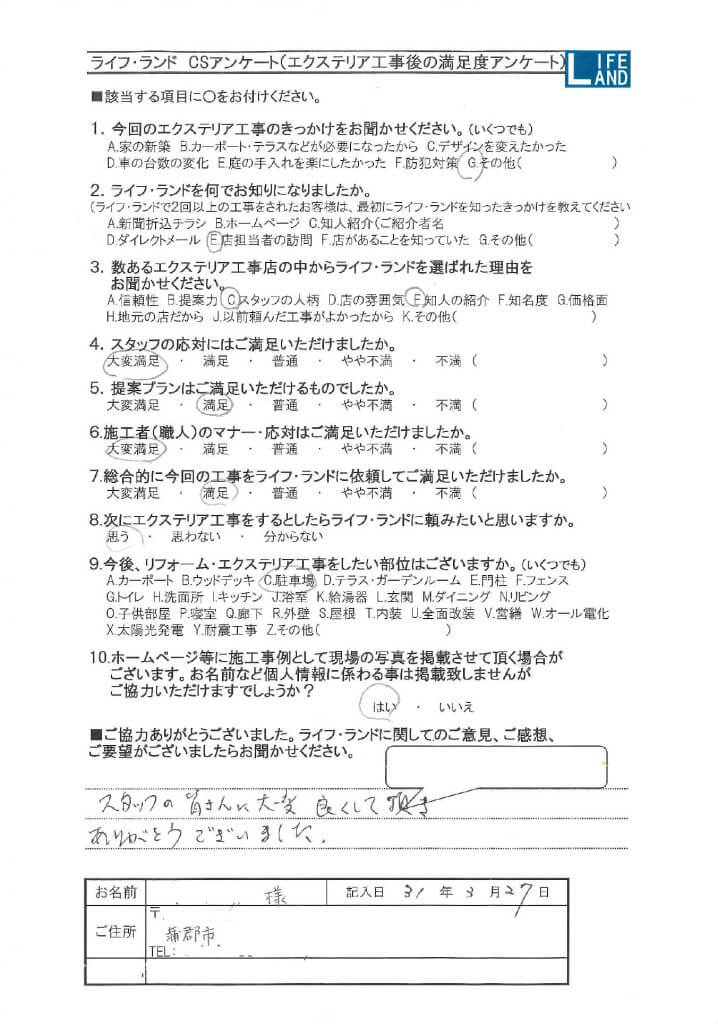 ライフ・ランド CSアンケート(エクステリア工事後の満足度アンケート)
LIFE LAND
■該当する項目に〇をお付けください。
1. 今回のエクステリア工事のきっかけをお聞かせください。(いくつでも)
A.家の新築 B.カーポート・テラスなどが必要になったから C.デザインを変えたかった
D.車の台数の変化 E.庭の手入れを楽にしたかった F.防犯対策 G.その他( )
2. ライフ・ランドを何でお知りになりましたか。
(ライフ・ランドで2回以上の工事をされたお客様は、最初にライフ・ランドを知ったきっかけを教えてください
A.新聞折込チラシ B.ホームページ C.知人紹介(ご紹介者名 )
D.ダイレクトメール E.店担当者の訪問 F.店があることを知っていた G.その他( )
3. 数あるエクステリア工事店の中からライフ・ランドを選ばれた理由を
お聞かせください。
A.信頼性 B.提案力 C.スタッフの人柄 D.店の雰囲気 E.知人の紹介 F.知名度 G.価格面
H.地元の店だから J.以前頼んだ工事がよかったから K.その他( )
4. スタッフの応対にはご満足いただけましたか。
大変満足 ・ 満足 ・ 普通 ・ やや不満 ・ 不満 ( )
5. 提案プランはご満足いただけるものでしたか。
大変満足 ・ 満足 ・ 普通 ・ やや不満 ・ 不満 ( )
6.施工者(職人)のマナー・応対はご満足いただけましたか。
大変満足 ・ 満足 ・ 普通 ・ やや不満 ・ 不満 ( )
7.総合的に今回の工事をライフ・ランドに依頼してご満足いただけましたか。
大変満足 ・ 満足 ・ 普通 ・ やや不満 ・ 不満 ( )
8.次にエクステリア工事をするとしたらライフ・ランドに頼みたいと思いますか。
思う ・ 思わない ・ 分からない
9.今後、リフォーム・エクステリア工事をしたい部位はございますか。(いくつでも)
A.カーポート B.ウッドデッキ C.駐車場 D.テラス・ガーデンルーム E.門柱 F.フェンス
G.トイレ H.洗面所 I.キッチン J.浴室 K.給湯器 L.玄関 M.ダイニング N.リビング
O.子供部屋 P.寝室 Q.廊下 R.外壁 S.屋根 T.内装 U.全面改装 V.営繕 W.オール電化
X.太陽光発電 Y.耐震工事 Z.その他( )
10.ホームページ等に施工事例として現場の写真を掲載させて頂く場合が
ございます。お名前など個人情報に係わる事は掲載致しませんが
ご協力いただけますでしょうか?
はい ・ いいえ
■ご協力ありがとうございました。ライフ・ランドに関してのご意見、ご感想、
ご要望がございましたらお聞かせください。
スタッフの皆さんに大変良くして頂き
ありがとうございました.
お名前 様 記入日 31 年 3 月 27 日
〒
ご住所 蒲郡市
TEL: